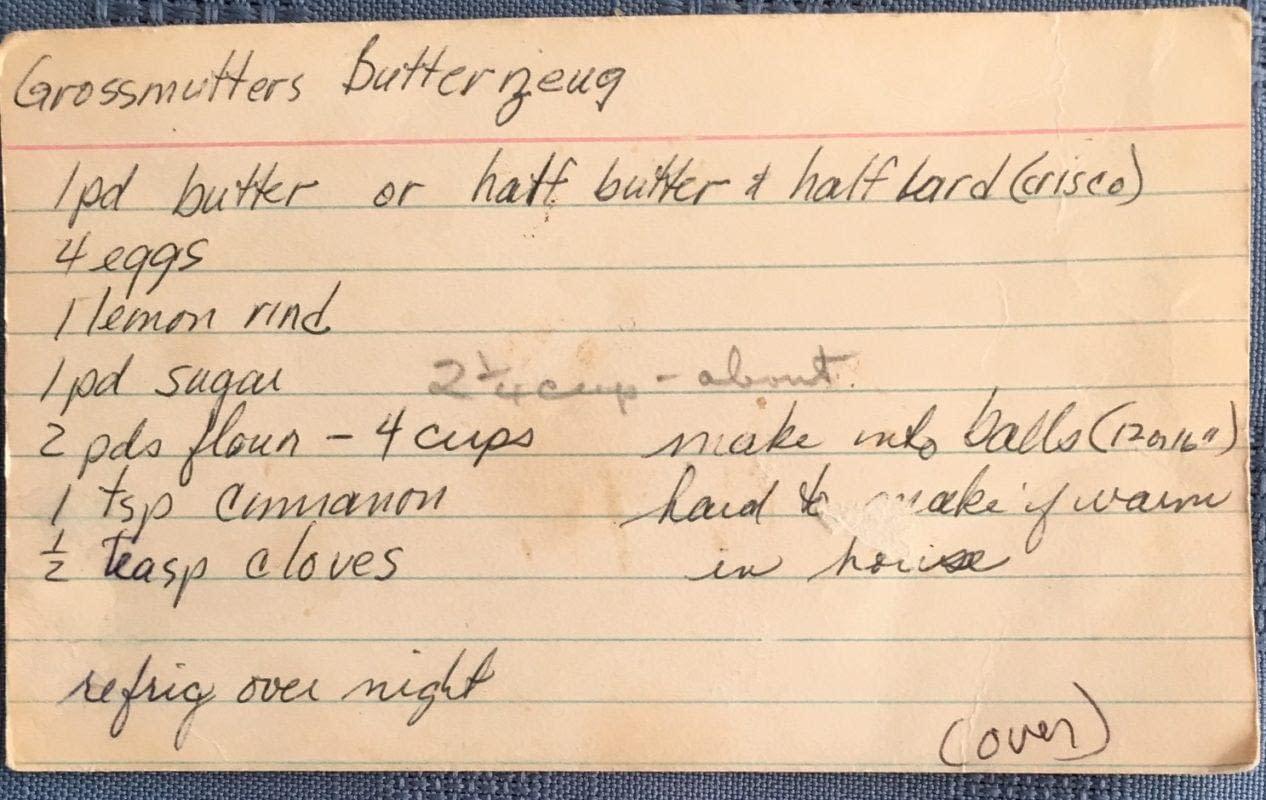 Grossmutters Butterzeug
1pd butter or half butter & half lard (crisco)
4 eggs
1 lemon rind
1pd sugar 2 1/4 cup - about
2 pds flour - 4 cups make into balls (12 or 16")
1 tsp cinnamon hard to make if warm
1/2 teasp cloves in house
refrig over night
(over)